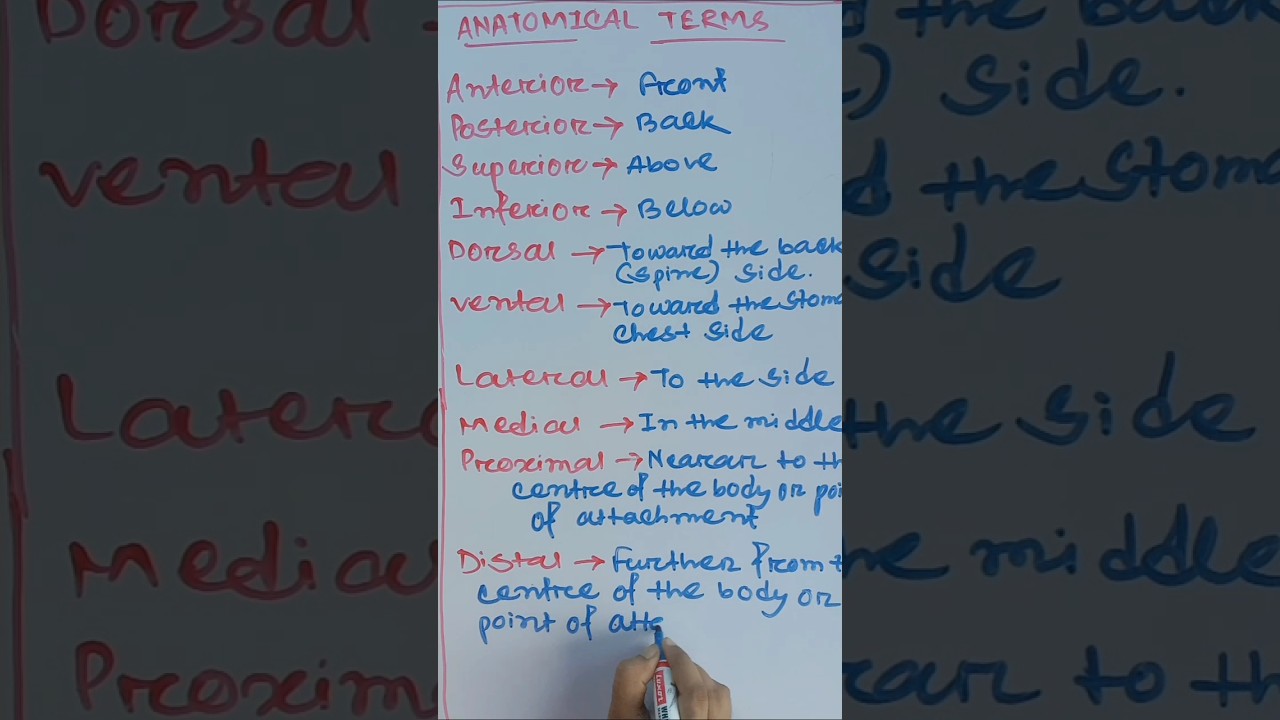 ANATOMICAL TERMS
Anterior → Front
Posterior → Back
Superior → Above
Inferior → Below
Dorsal → Toward the back
(spine) side.
ventral → Toward the stoma
chest side
Lateral → To the side
Medial → In the middle
Proximal → Nearar to th
centre of the body or poi
of attachment
Distal → Further from t
centre of the body or
point of atta